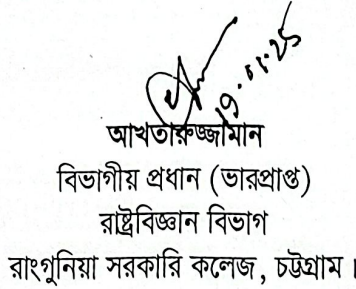 আখতারুজ্জামান
বিভাগীয় প্রধান (ভারপ্রাপ্ত)
রাষ্ট্রবিজ্ঞান বিভাগ
রাংগুনিয়া সরকারি কলেজ, চট্টগ্রাম।